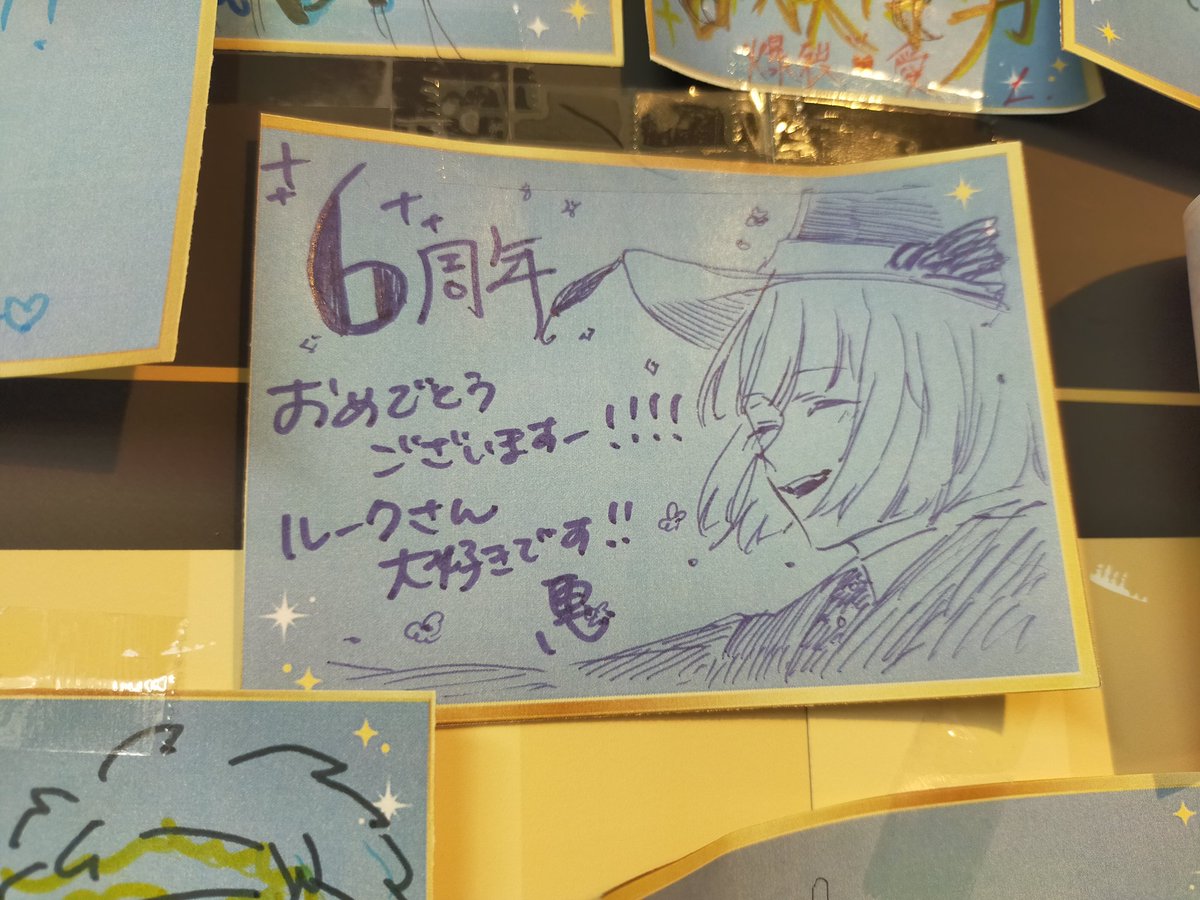 爆豪
愛
6周年
おめでとう
ございますー!!!!
ルークさん
大好きです!!
恵